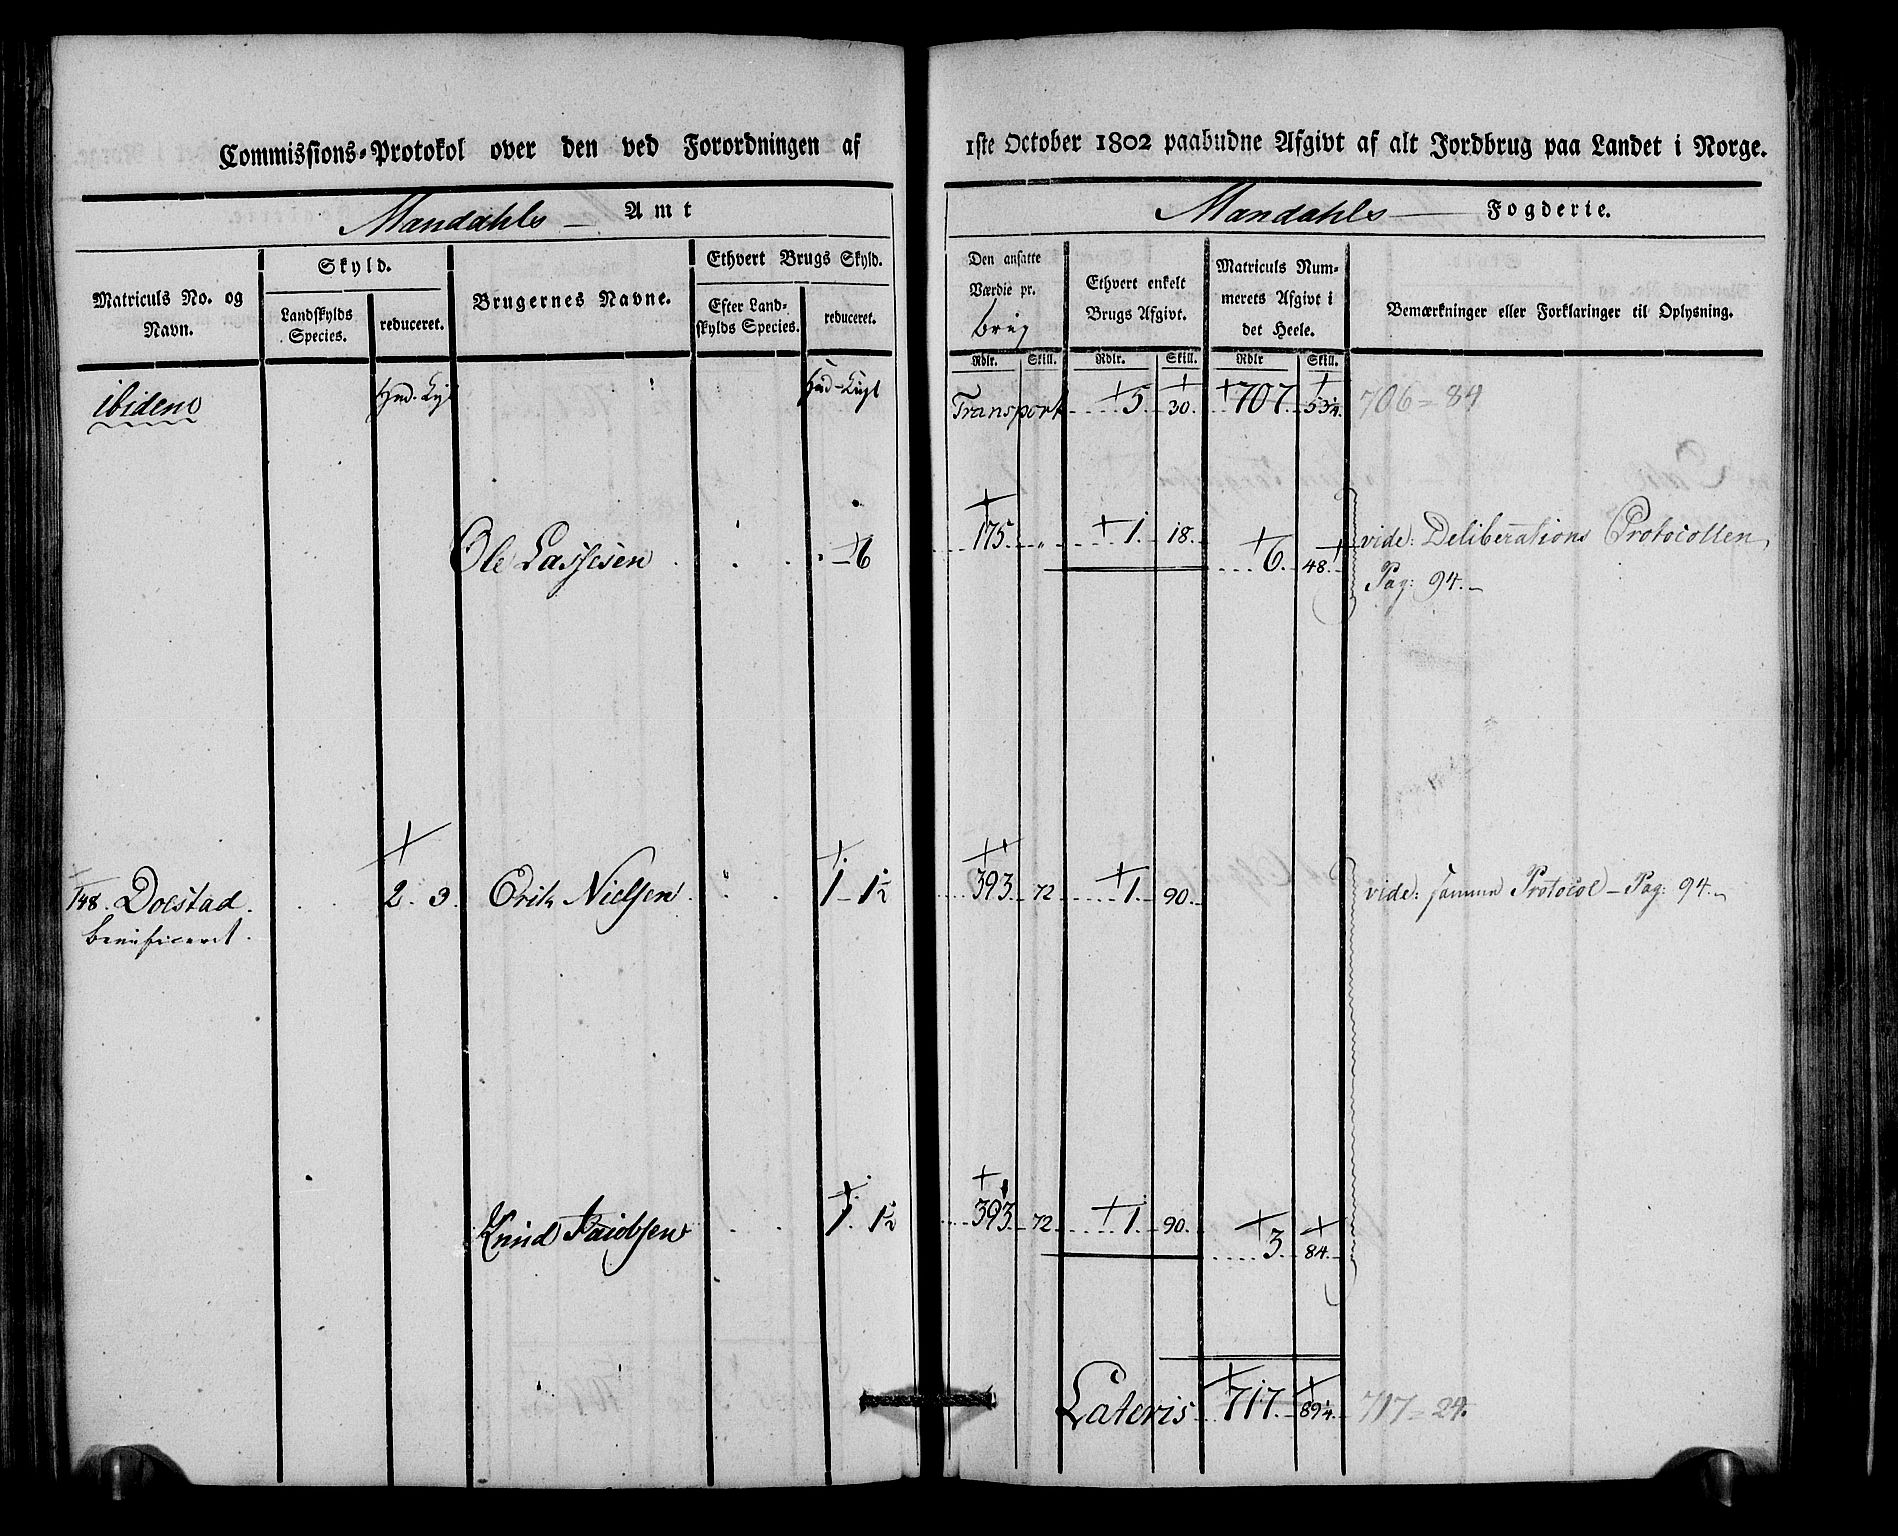 Commissions-Protokol over den ved Forordningen af 1ste October 1802 paabudne Afgivt af alt Jordbrug paa Landet i Norge.
Mandahls Amt
Mandahls Fogderie.
Matriculs No. og Navn.
Skyld.
Landskylds Species.
reduceret.
Brugernes Navne.
Ethvert Brugs Skyld.
Efter Landskylds Species.
reduceret.
Den ansatte Værdie pr. brug
Ethvert enkelt Brugs Afgivt.
Matriculs Nummerets Afgivt i det Heele.
Bemærkninger eller Forklaringer til Oplysning.
Rdlr. Skill. Rdlr. Skill. Rdlr Skill.
ibidem Transport 5 30. 707. 53¼. 706 = 84
Ole Lassesen 6 175. 1. 18. 6. 48. vide: Deliberations Protocollen,
Pag: 94.
148. Doestad. 2. 3. Erik Nielsen 1 - 1½ 393. 72 1. 90. vide: samme Protocol - Pag: 94.
benificeret.
Knud Jacobsen 1. 1½ 393 72 1. 90. 3. 84.
Lateris 717. 89¼. 717 = 24.